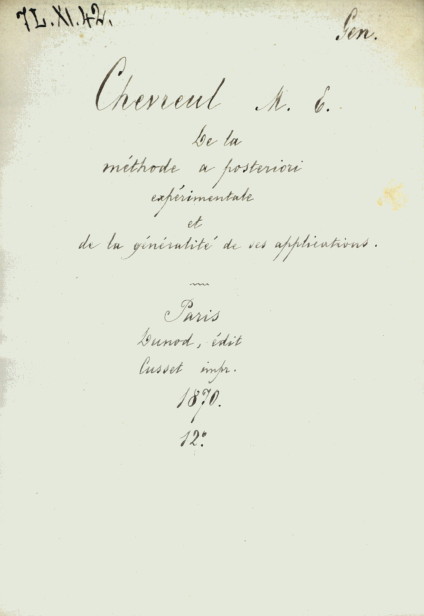 7L.XI.42.
Gen.
Chevreul M. E.
De la
méthode a posteriori
expérimentale
et
de la généralité de ses applications.
Paris
Dunod, édit
Cusset impr.
1870.
12º